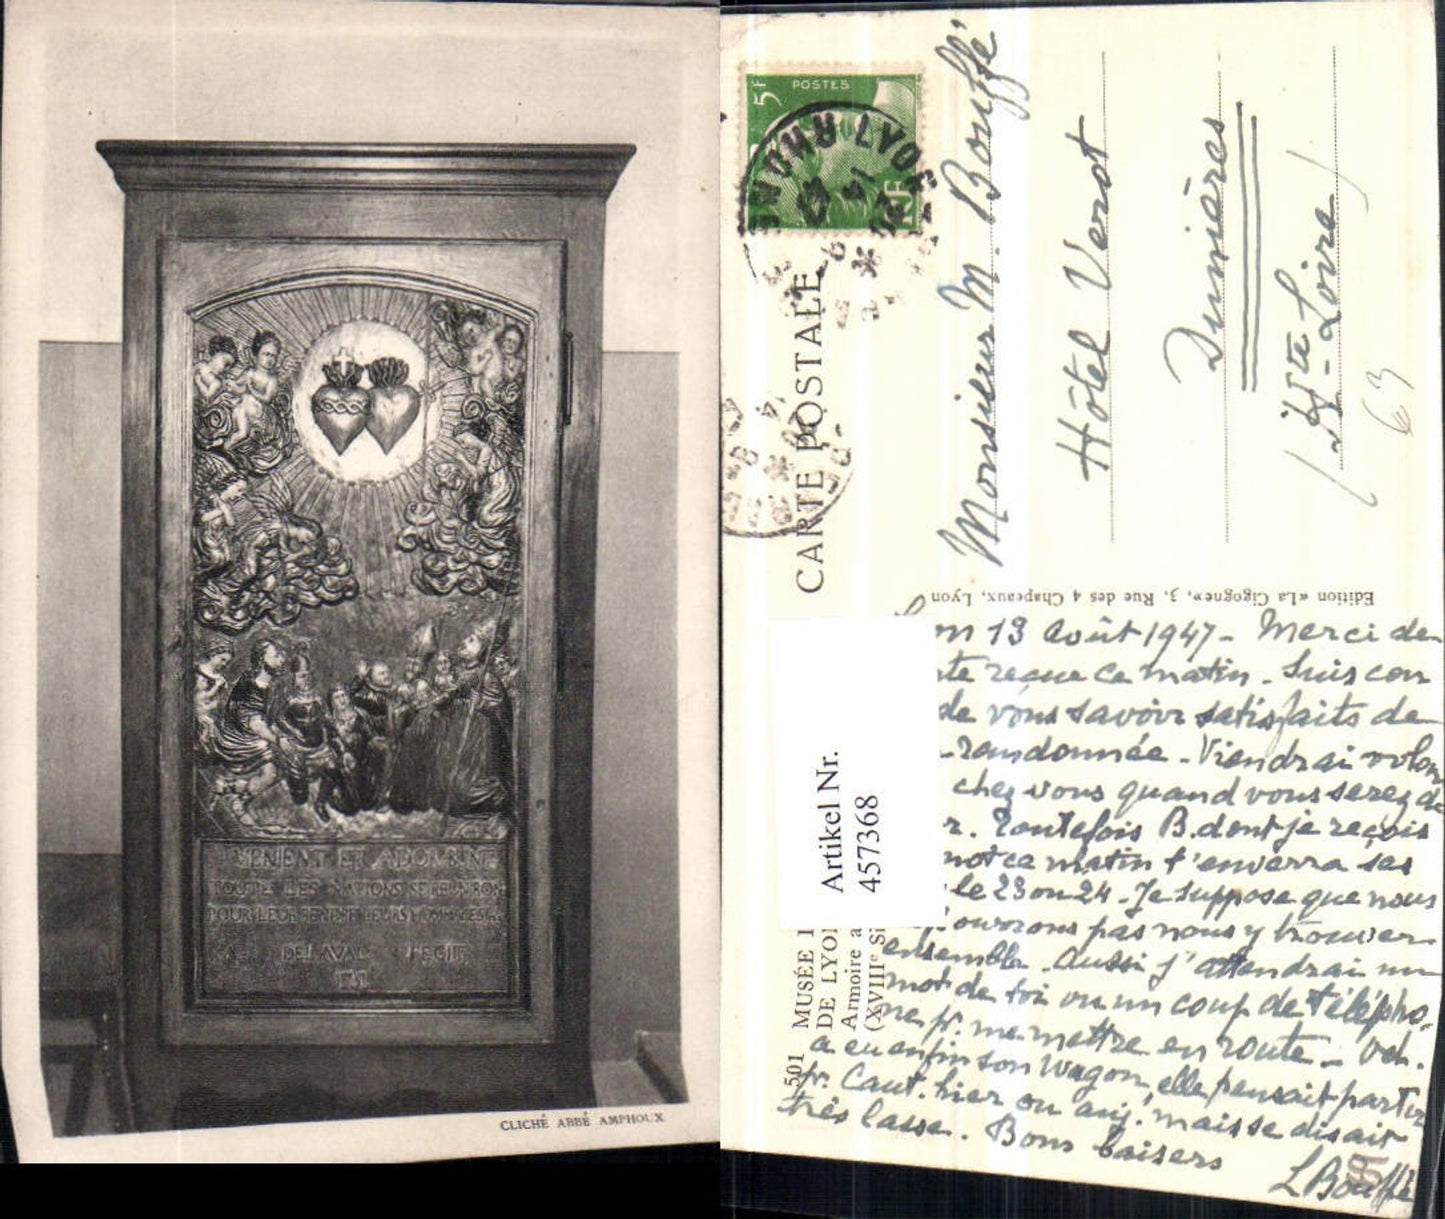 VENIENT ET ADORABUNT
TOUTES LES NATIONS SE REUNIRON
POUR LEUR RENDRE LEURS HOMMAGES
DELAVAL FECIT
CLICHÉ ABBÉ AMPHOUX
POSTES
5F
RF
LYON
RHONE
CARTE POSTALE
Monsieur M. Bouffé
Hôtel Verot
Dunières
(Hte Loire)
63
Edition «La Cigogne», 3, Rue des 4 Chapeaux, Lyon
Artikel Nr.
457368
501 MUSÉE
DE LYON
Armoire a
(XVIIIe Si
13 Août 1947 - Merci de
reçue ce matin. Suis con
de vous savoir satisfaits de
randonnée. Viendrai volon
chez vous quand vous serez de
r. Toutefois B. dont je reçois
mot ce matin t'enverra ses
le 23 ou 24. Je suppose que nous
pourrons pas nous y trouver
ensemble. Aussi j'attendrai un
mot de toi ou un coup de télépho-
ne pr. me mettre en route -
a eu enfin son wagon, elle pensait partir
pr. Caut. hier ou auj. mais se disait
très lasse. Bons baisers
L Bouffé